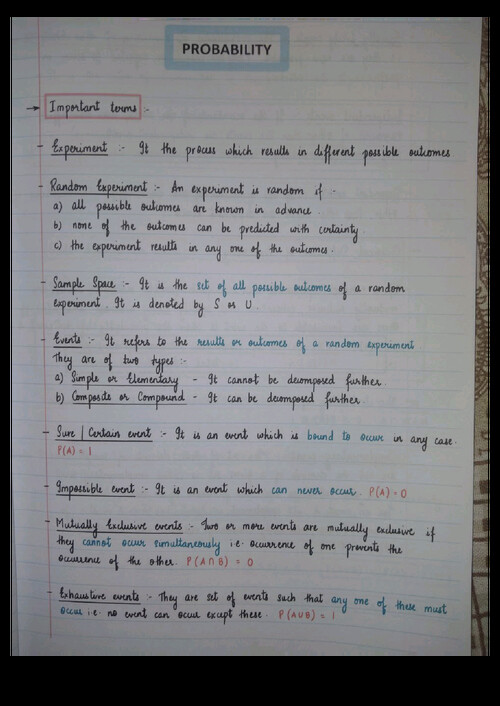 PROBABILITY
→ Important terms :-
- Experiment :- It the process which results in different possible outcomes
- Random Experiment :- An experiment is random if :-
a) all possible outcomes are known in advance.
b) none of the outcomes can be predicted with certainty
c) the experiment results in any one of the outcomes.
- Sample Space :- It is the set of all possible outcomes of a random
experiment. It is denoted by S or U.
- Events :- It refers to the results or outcomes of a random experiment
They are of two types :-
a) Simple or Elementary - It cannot be decomposed further.
b) Composite or Compound - It can be decomposed further.
- Sure / Certain event :- It is an event which is bound to occur in any case.
P(A) = 1
- Impossible event :- It is an event which can never occur. P(A) = 0
- Mutually Exclusive events :- Two or more events are mutually exclusive if
they cannot occur simultaneously i.e. occurrence of one prevents the
occurrence of the other. P(A∩B) = 0
- Exhaustive events :- They are set of events such that any one of these must
occur i.e. no event can occur except these. P(A∪B) = 1